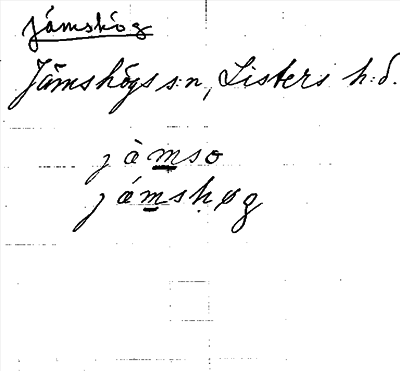 jämshög
Jämshögs s:n, Listers h:d.
jàmso
jámshøg